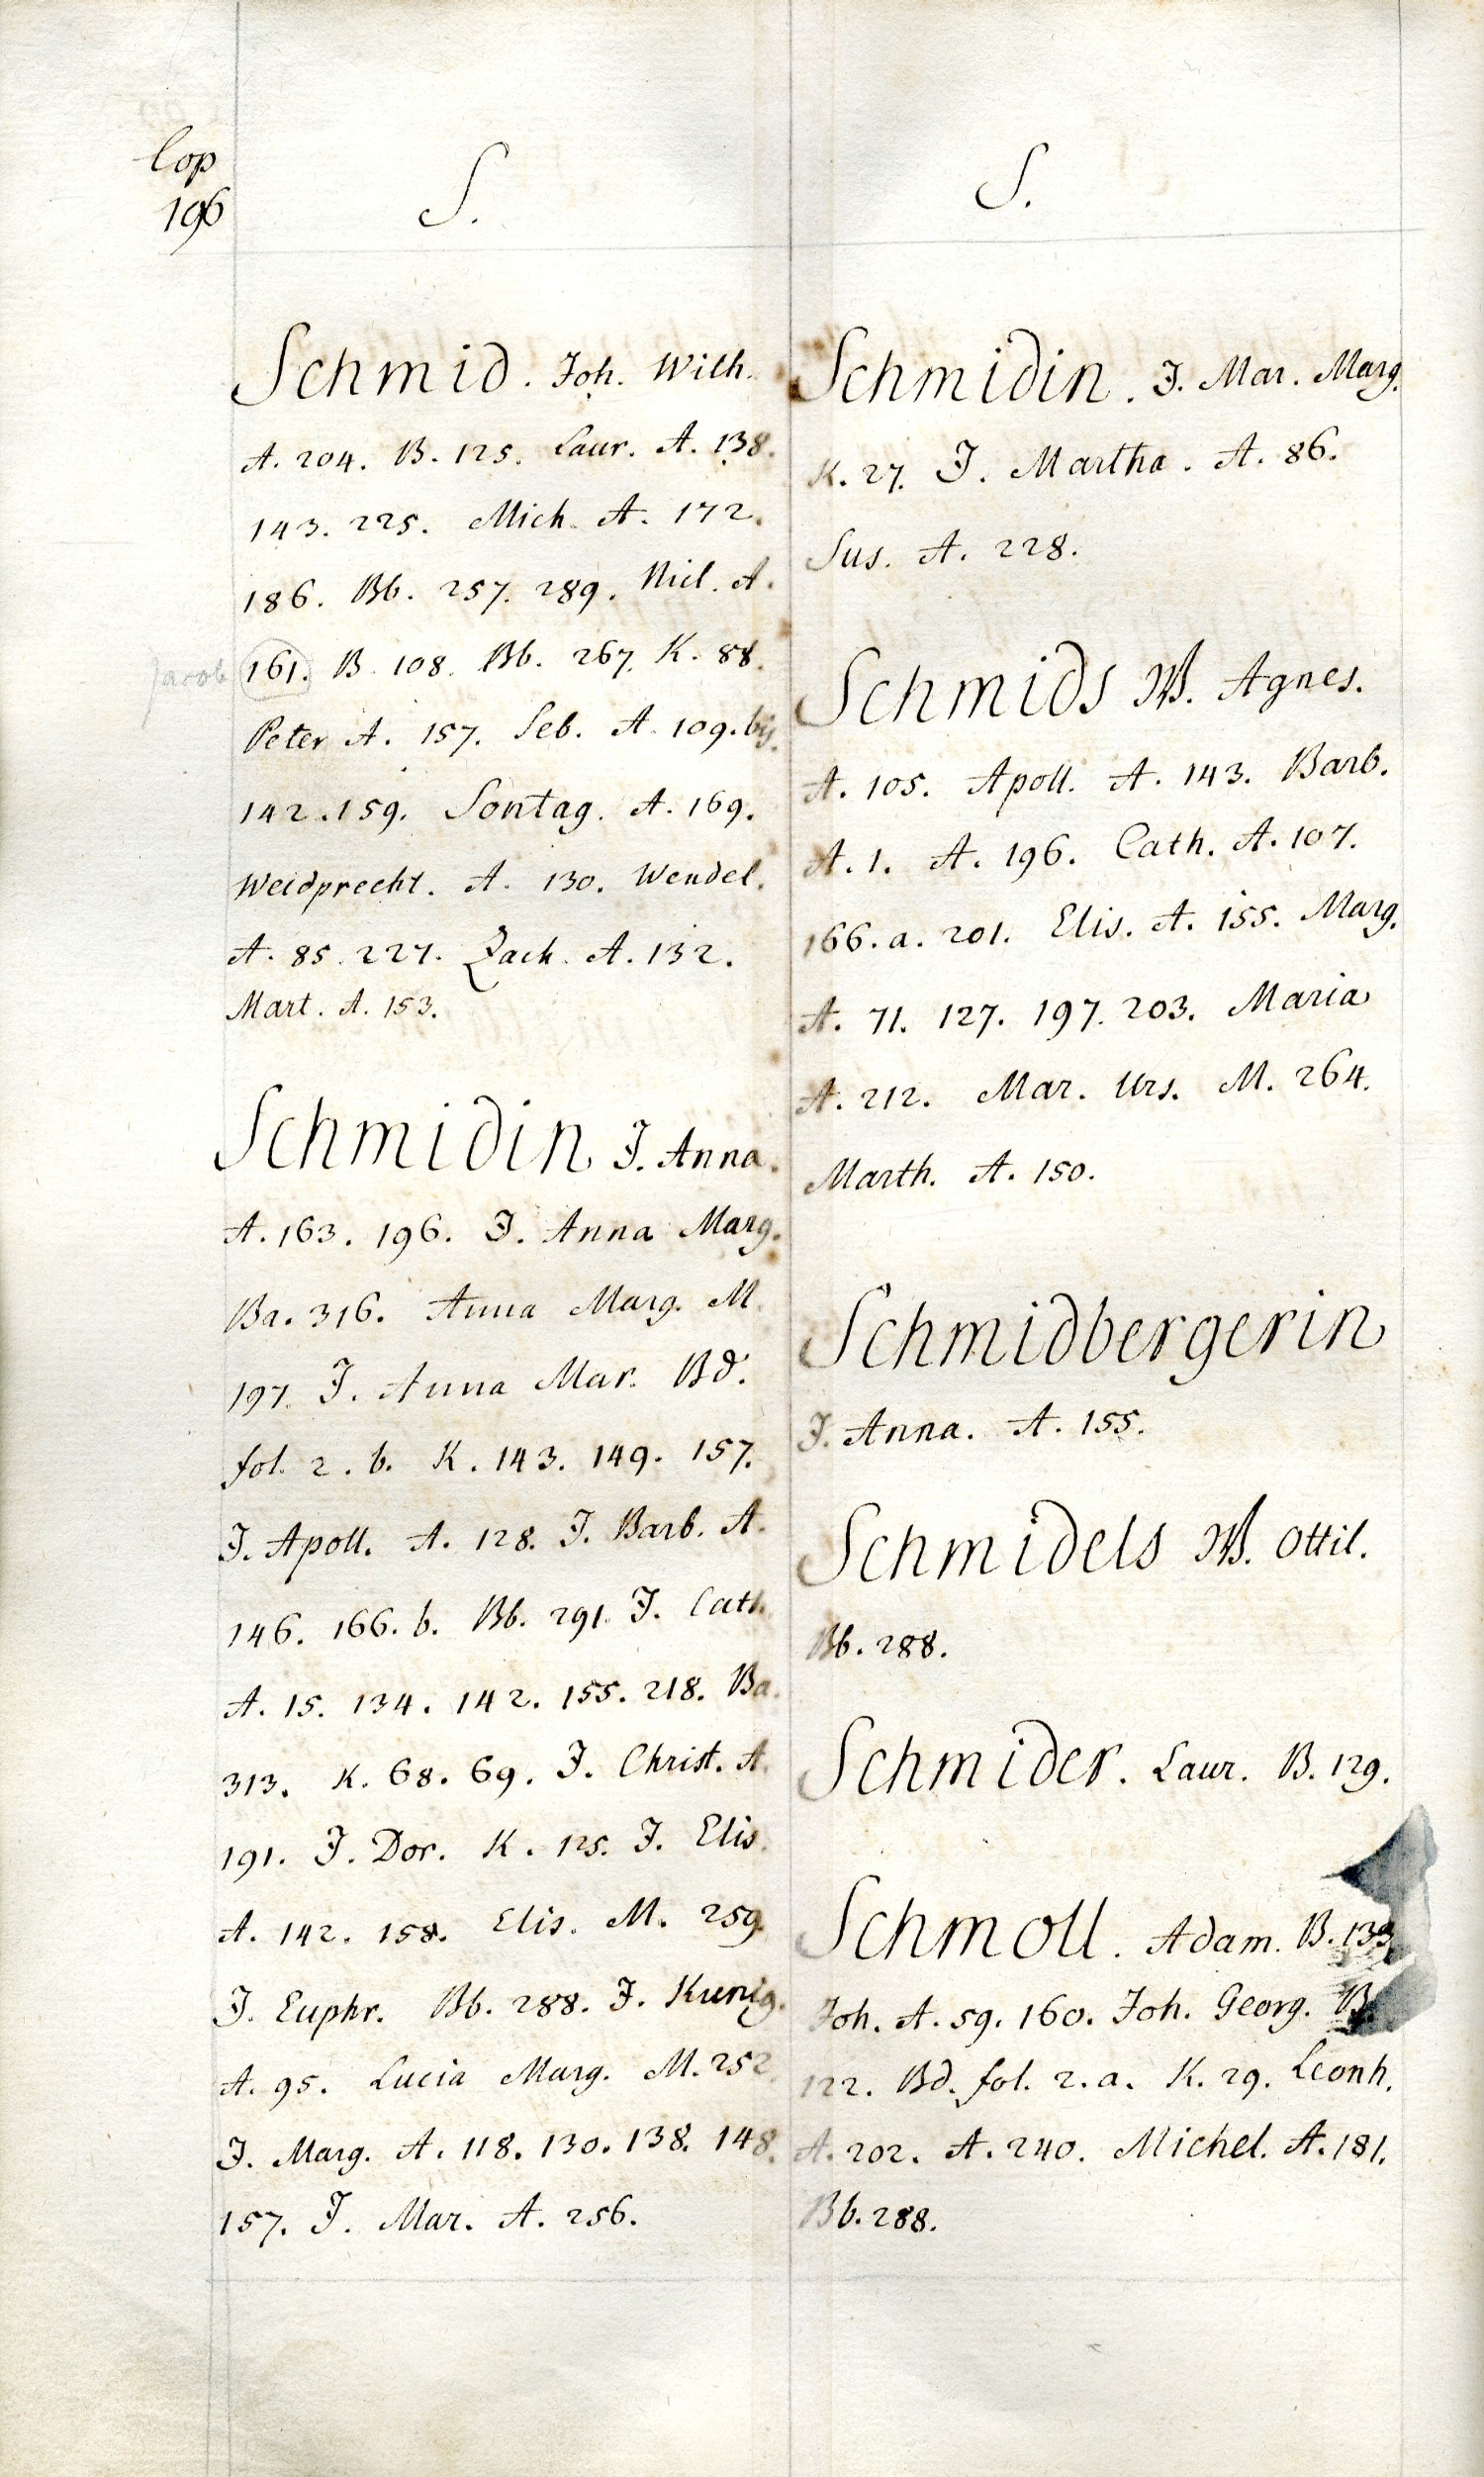 Cop
196
S.
Schmid. Joh. Wilh.
A. 204. B. 125. Laur. A. 138.
143. 225. Mich. A. 172.
186. Bb. 257. 289. Nicl. A.
Jacob 161. B. 108. Bb. 267. K. 88.
Peter A. 157. Seb. A. 109. bis.
142. 159. Sontag. A. 169.
Weidprecht. A. 130. Wendel.
A. 85. 227. Zach. A. 132.
Mart. A. 153.
Schmidin J. Anna.
A. 163. 196. J. Anna Marg.
Ba. 316. Anna Marg. M.
197. J. Anna Mar. Bd.
fol. 2. b. K. 143. 149. 157.
J. Apoll. A. 128. J. Barb. A.
146. 166. b. Bb. 291. J. Cath.
A. 15. 134. 142. 155. 218. Ba.
313. K. 68. 69. J. Christ. A.
191. J. Dor. K. 125. J. Elis.
A. 142. 158. Elis. M. 259.
J. Euphr. Bb. 288. J. Kunig.
A. 95. Lucia Marg. M. 252.
J. Marg. A. 118. 130. 138. 148.
157. J. Mar. A. 256.
S.
Schmidin. J. Mar. Marg.
K. 27. J. Martha. A. 86.
Sus. A. 228.
Schmids W. Agnes.
A. 105. Apoll. A. 143. Barb.
A. 1. A. 196. Cath. A. 107.
166. a. 201. Elis. A. 155. Marg.
A. 71. 127. 197. 203. Maria
A. 212. Mar. Urs. M. 264.
Marth. A. 150.
Schmidbergerin
J. Anna. A. 155.
Schmidels W. Ottil.
Bb. 288.
Schmider. Laur. B. 129.
Schmoll. Adam. B. 133.
Joh. A. 59. 160. Joh. Georg. B.
122. Bd. fol. 2. a. K. 29. Leonh.
A. 202. A. 240. Michel. A. 181.
Bb. 288.